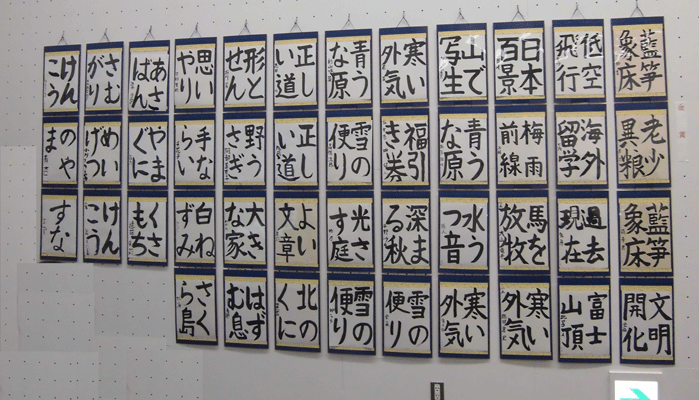 藍筍
象床
老少
異粮
藍筍
象床
文明
開化
低空
飛行
海外
留学
過去
現在
富士
山頂
日本
百景
梅雨
前線
馬を
放牧
寒い
外気
山で
写生
青う
な原
水う
つ音
寒い
外気
寒い
外気
福引
き券
深ま
る秋
雪の
便り
青う
な原
雪の
便り
光さ
す庭
雪の
便り
正し
い道
正し
い道
よい
文章
北の
くに
形と
せん
野う
さぎ
大き
な家
はず
む息
思い
やり
手な
らい
白ね
ずみ
さく
ら島
あさ
ばん
やま
ぐに
くさ
もち
さむ
がり
めい
げつ
けん
こう
けん
こう
のや
ま
すな